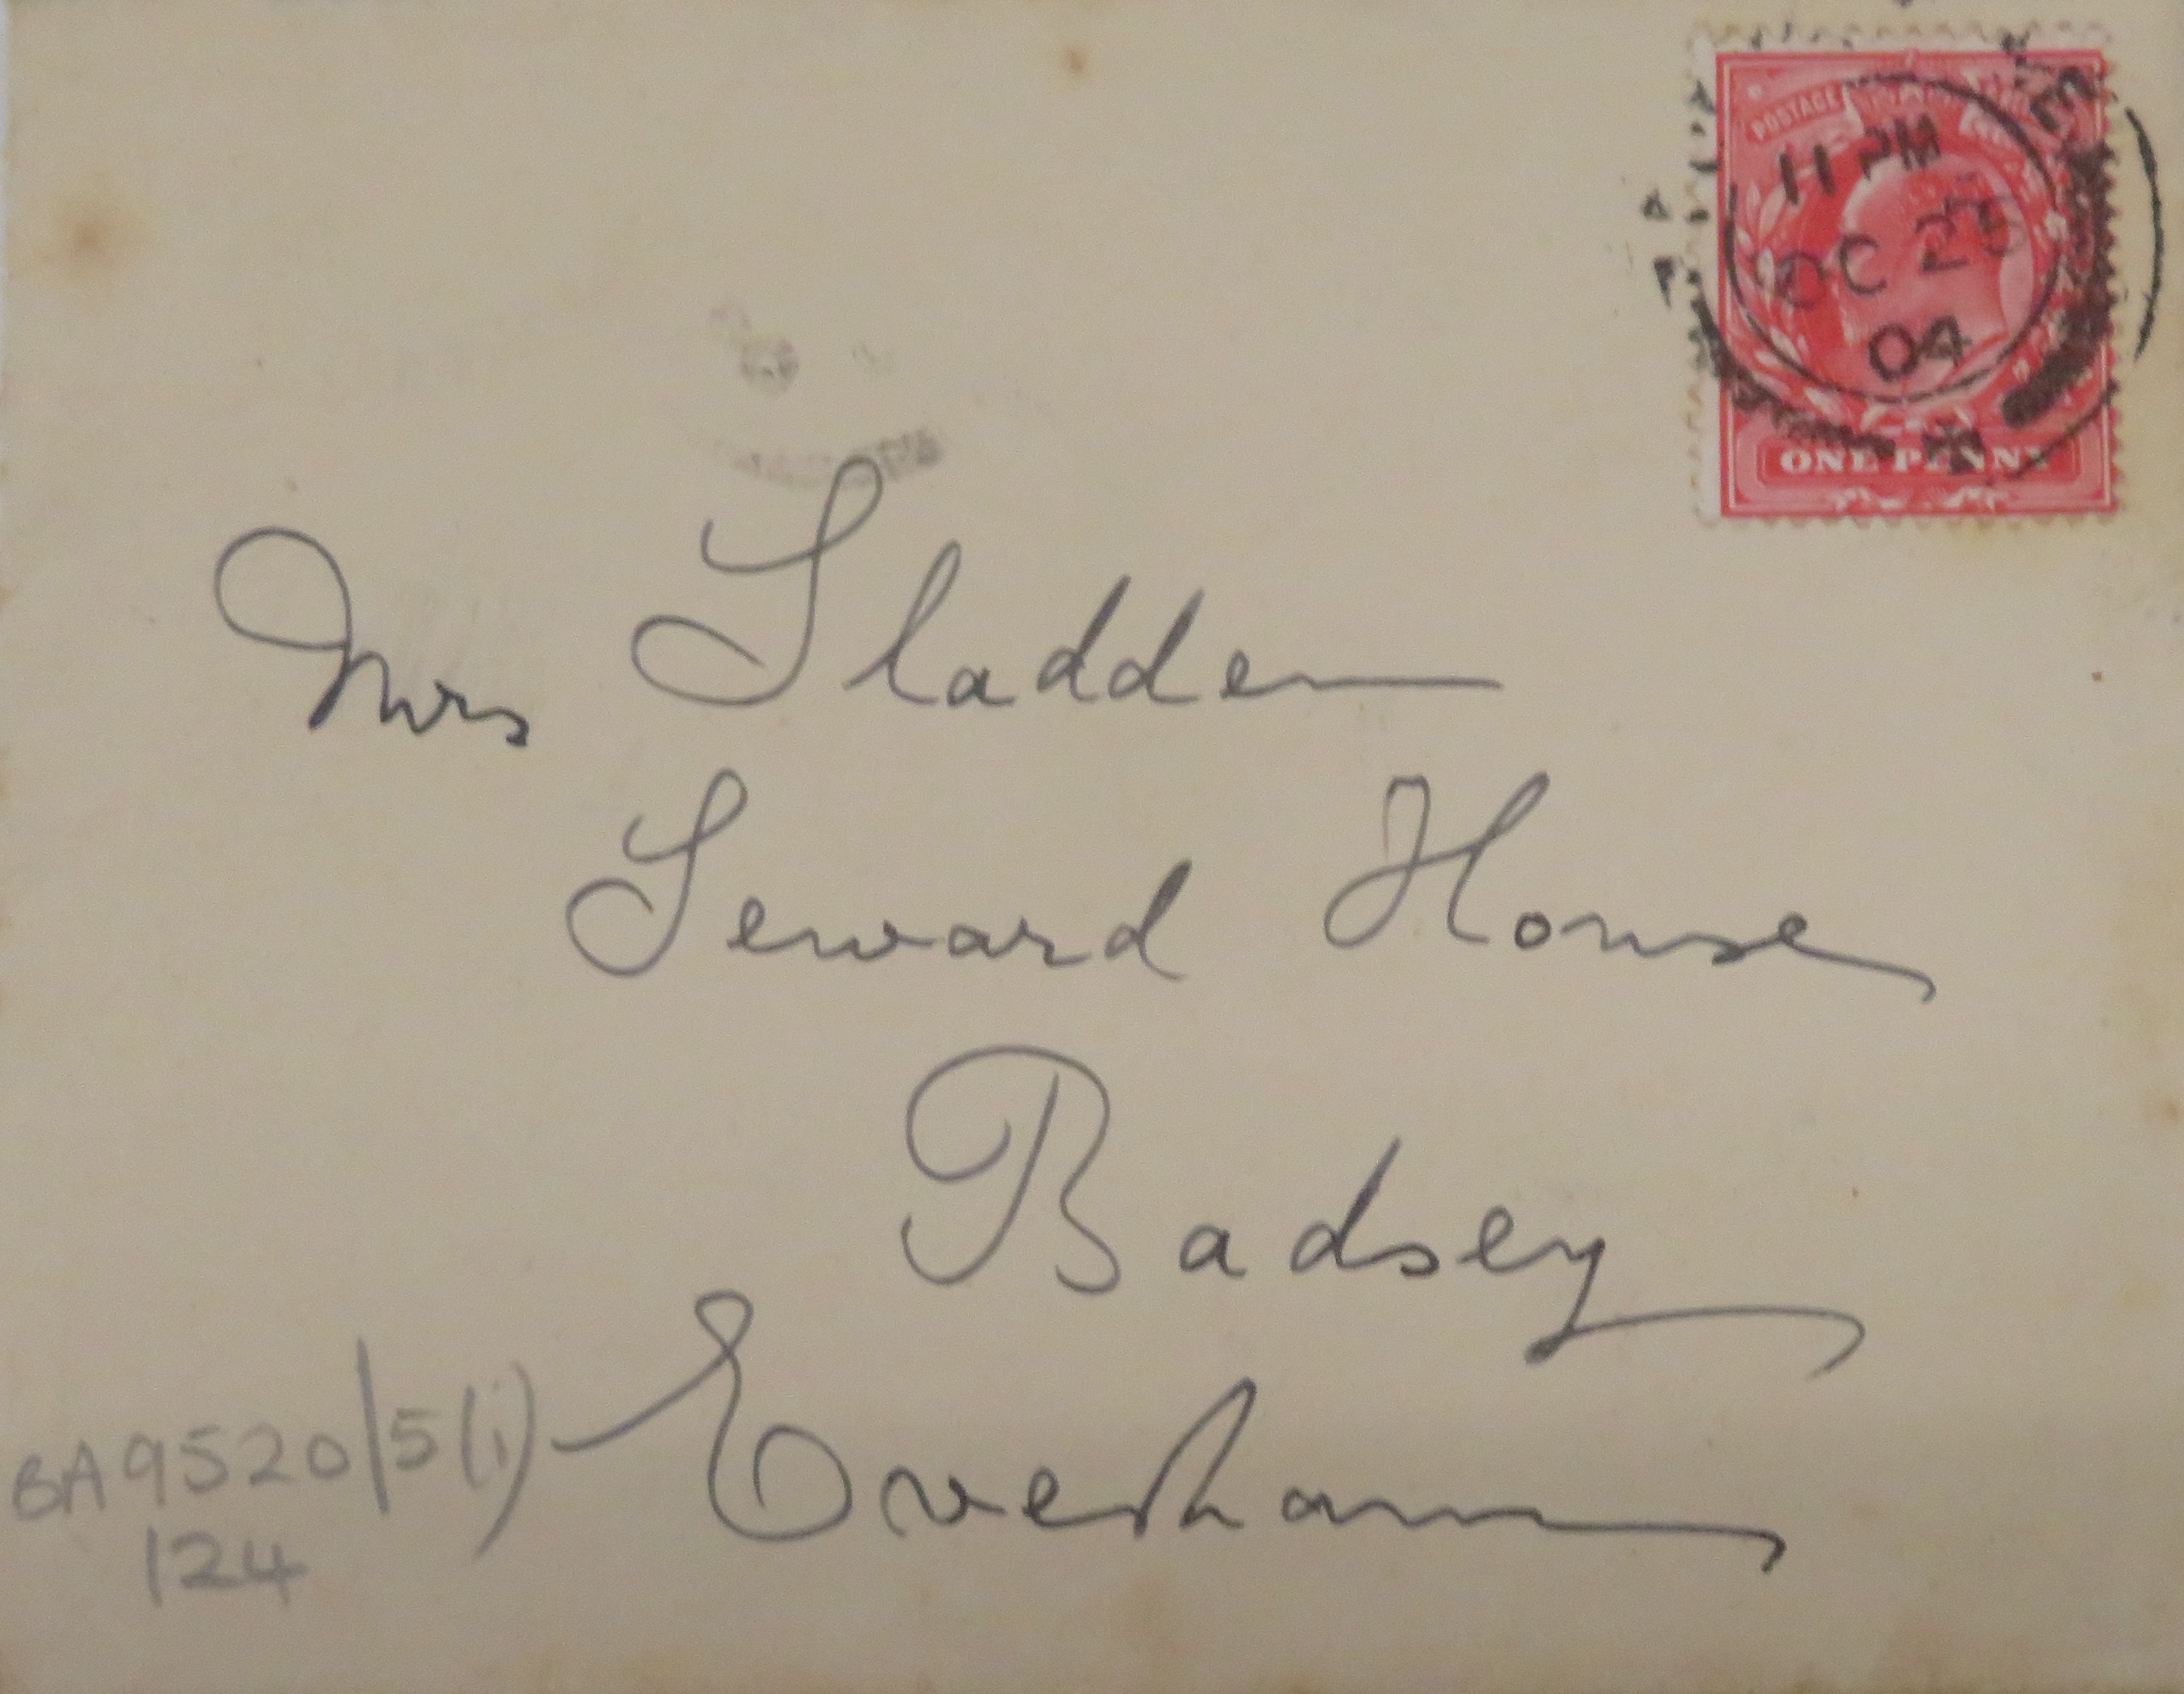 POSTAGE
11 PM
OC 25
04
ONE PENNY
Mrs Sladden
Seward House
Badsey
Evesham
BA9520/5(i)
124